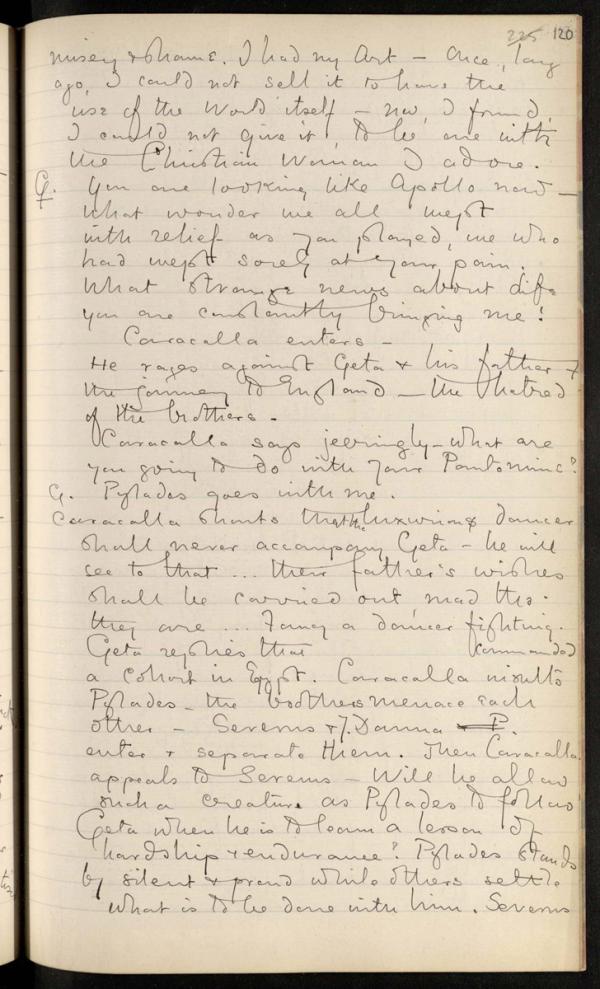 225 120
misery & shame. I had my Art – Once, long
ago, I could not sell it to have the
use of the World itself – now, I found,
I could not give it, to be one with
the Christian Woman I adore.
G. You are looking like Apollo now –
what wonder we all wept
with relief as you played, we who
had wept sorely at your pain.
What strange news about life
you are constantly bringing me!
Caracalla enters –
He rages against Geta & his father &
the journey to England – the hatred
of the brothers.
Caracalla says jeeringly – what are
you going to do with your Pantomime?
G. Pylades goes with me.
Caracalla shouts that the luxurious dancer
shall never accompany Geta – he will
see to that ... their father's wishes
shall be carried out, mad tho'
they are ... Fancy a dancer fighting.
Geta replies that commanded
a cohort in Egypt. Caracalla insults
Pylades – the brothers menace each
other – Severus & J. Domna P.
enter & separate them. Then Caracalla
appeals to Severus – Will he allow
such a creature as Pylades to follow
Geta when he is to learn a lesson of
hardship & endurance? Pylades stands
by silent & proud while others settle
what is to be done with him. Severus